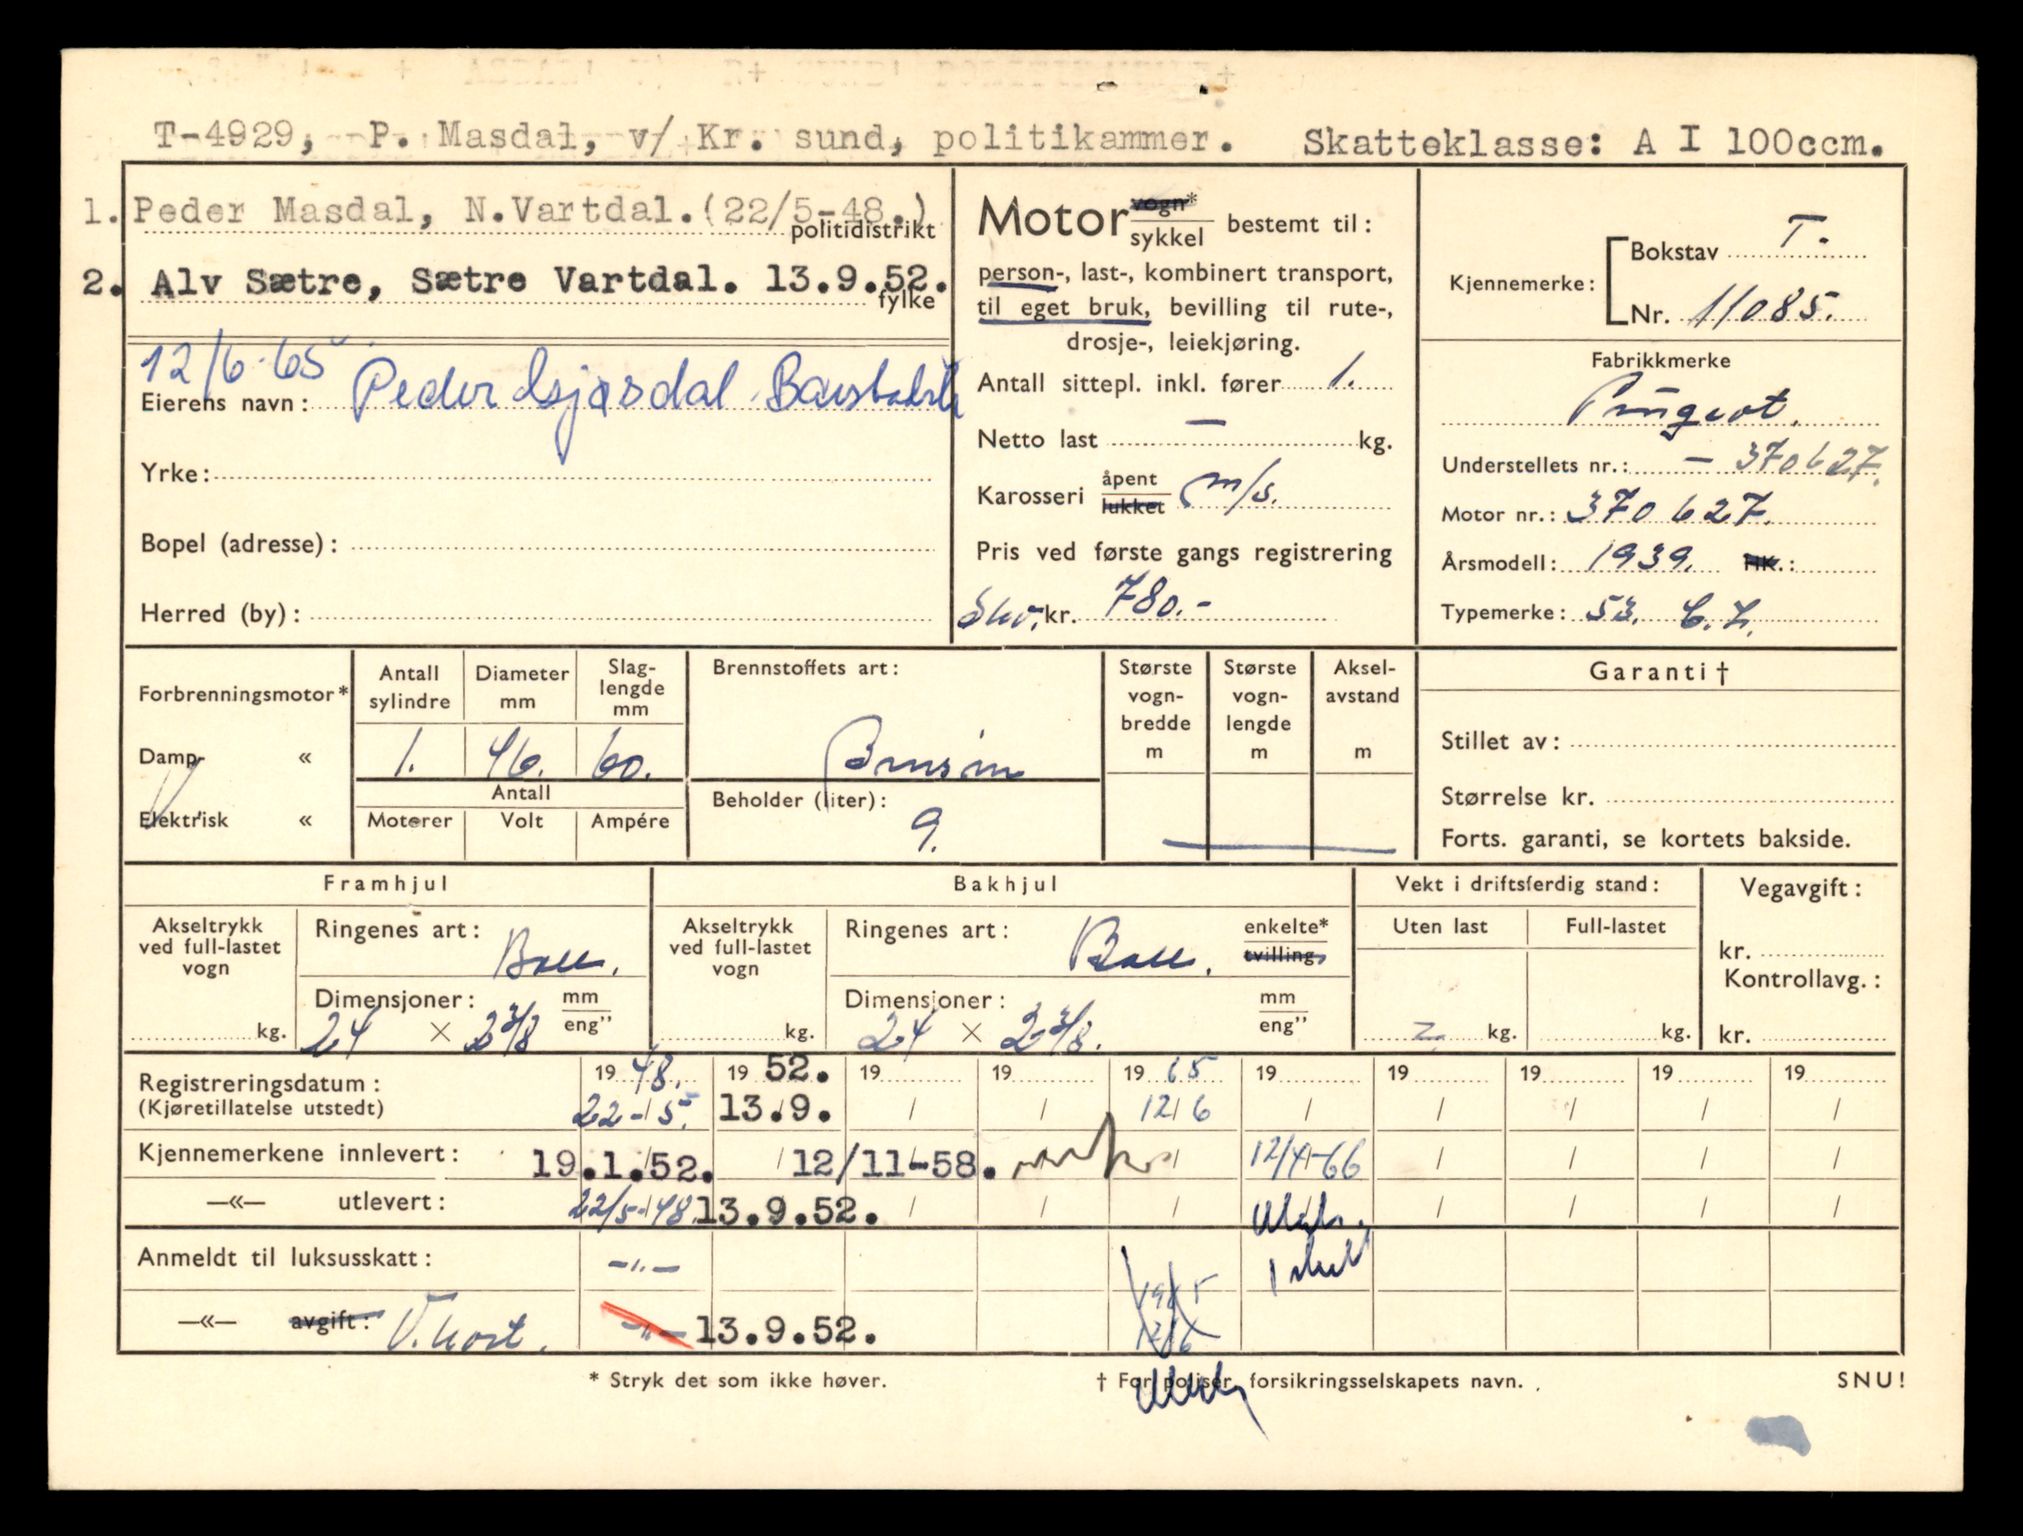 T-4929, P. Masdal, v/ Kr. sund, politikammer. Skatteklasse: A I 100ccm.
1. Peder Masdal, N.Vartdal.(22/5-48.)
politidistrikt
2. Alv Sætre, Sætre Vartdal. 13.9.52.
fylke
12/6-65 Peder
Eierens navn:
Yrke:
Bopel (adresse):
Herred (by):
Motor vogn* sykkel bestemt til:
person-, last-, kombinert transport,
til eget bruk, bevilling til rute-,
drosje-, leiekjøring.
Antall sittepl. inkl. fører 1.
Netto last — kg.
Karosseri åpent lukket m/s.
Pris ved første gangs registrering
kr. 780.-
Kjennemerke: Bokstav T.
Nr. 11085.
Fabrikkmerke
Peugeot.
Understellets nr.: — 370627.
Motor nr.: 370627.
Årsmodell: 1939. HK.:
Typemerke: 53.
Forbrenningsmotor*
Damp- «
Elektrisk «
Antall sylindre
Diameter mm
Slag-lengde mm
1. 46. 60.
Antall
Motorer Volt Ampére
Brennstoffets art:
Bensin
Beholder (liter):
9.
Største vogn-bredde m
Største vogn-lengde m
Aksel-avstand m
Garanti †
Stillet av:
Størrelse kr.
Forts. garanti, se kortets bakside.
Framhjul
Akseltrykk ved full-lastet vogn
kg.
Ringenes art: Ball.
Dimensjoner: mm eng”
24 × 2 3/8
Bakhjul
Akseltrykk ved full-lastet vogn
kg.
Ringenes art: Ball. enkelte* tvilling
Dimensjoner: mm eng”
24 × 2 3/8.
Vekt i driftsferdig stand:
Uten last Full-lastet
kg. kg.
Vegavgift:
kr.
Kontrollavg.:
kr.
Registreringsdatum: 19 48. 19 52. 19 19 19 65 19 19 19 19 19
(Kjøretillatelse utstedt) 22-5. 13.9. / / 12/6 / / / / /
Kjennemerkene innlevert: 19.1.52. / 12/11-58. / 12/4-66 / / / /
—«— utlevert: 22/5-48. 13.9.52. / / / / / / /
Anmeldt til luksusskatt: -"-
—«— avgift: V.kort. -"- 13.9.52. 1965 12/6
* Stryk det som ikke høver. † For poliser, forsikringsselskapets navn. SNU!